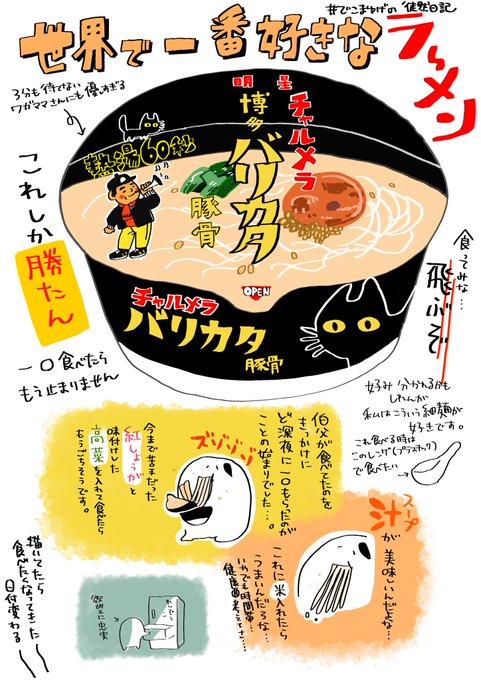 #でこまるげの徒然日記
世界で一番好きな
ラーメン
3分も待てない
ワガママさんにも優しすぎる
熱湯60秒
明星
チャルメラ
博多
バリカタ
豚骨
OPEN
チャルメラ
バリカタ
豚骨
これしか
勝たん
一口食べたら
もう止まりません
食ってみな…
飛ぶぞ
好み分かれるかも
しれんが
私はこういう細麺が
好きです。
これ食べる時は
このレンゲ(プラスチック)
で食べたい
伯父が食べてたのを
きっかけに
ど深夜に一口もらったのが
ことの始まりでした…。
ズゾゾゾ
今まで苦手だった
紅しょうがと
味付けした
高菜を入れて食べたら
もうごちそうです。
スープ
汁が
美味しいんだよな…
これに米入れたら
うまいんだろな…
いやでも時間帯…
健康面考えてさ…
欲望に忠実
描いてたら
食べたくなってきた
日付変わる